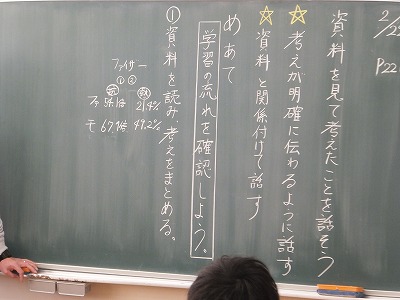 2/2
P22
資料を見て考えたことを話そう
☆考えが明確に伝わるように話す
☆資料と関係付けて話す
めあて
学習の流れを確認しよう。
①資料を読み、考えをまとめる。
ファイザー
① ②
モ 67.9倍 49.2%